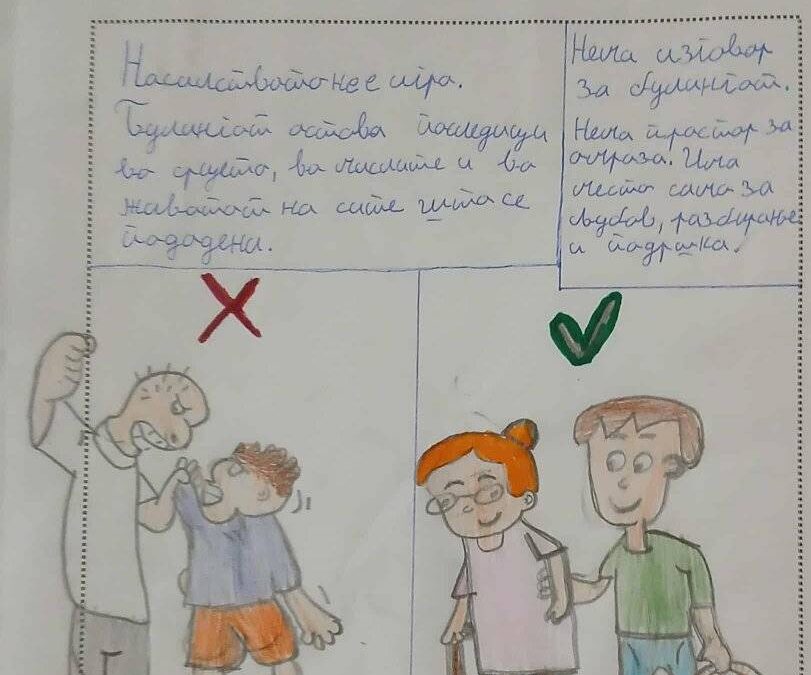 Насилството не е игра.
Булингот остава последици
во срцето, во мислите и во
животот на сите што се
пододена.
Нема изговор
за булингот.
Нема простор за
омраза. Има
место само за
љубов, разбирање
и подршка.